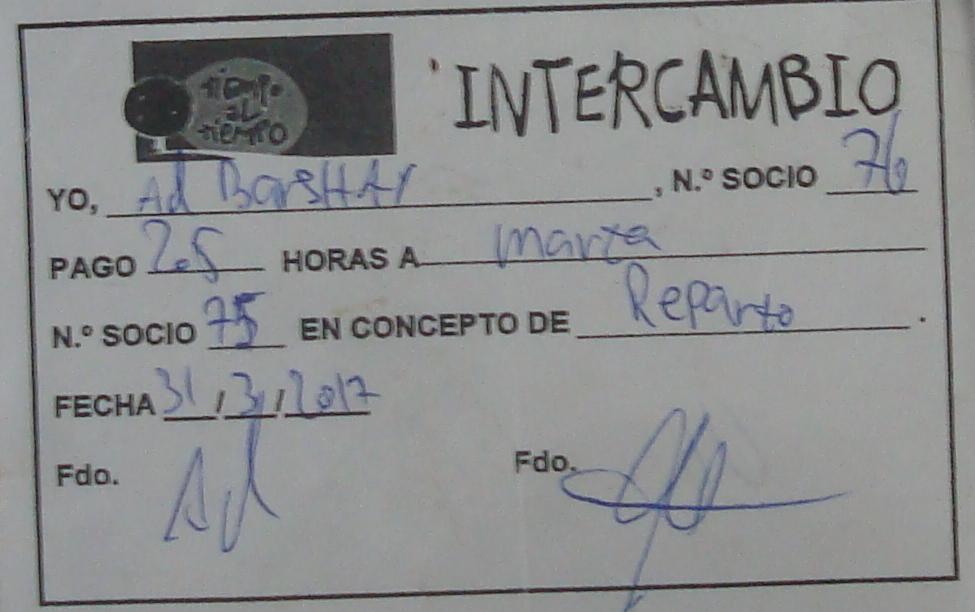 tiempo
al
tiempo
INTERCAMBIO
YO, Ad BarsHAY, N.º SOCIO 76
PAGO 2.5 HORAS A marta
N.º SOCIO 75 EN CONCEPTO DE Reparto.
FECHA 31/3/2017
Fdo. Ad Fdo.